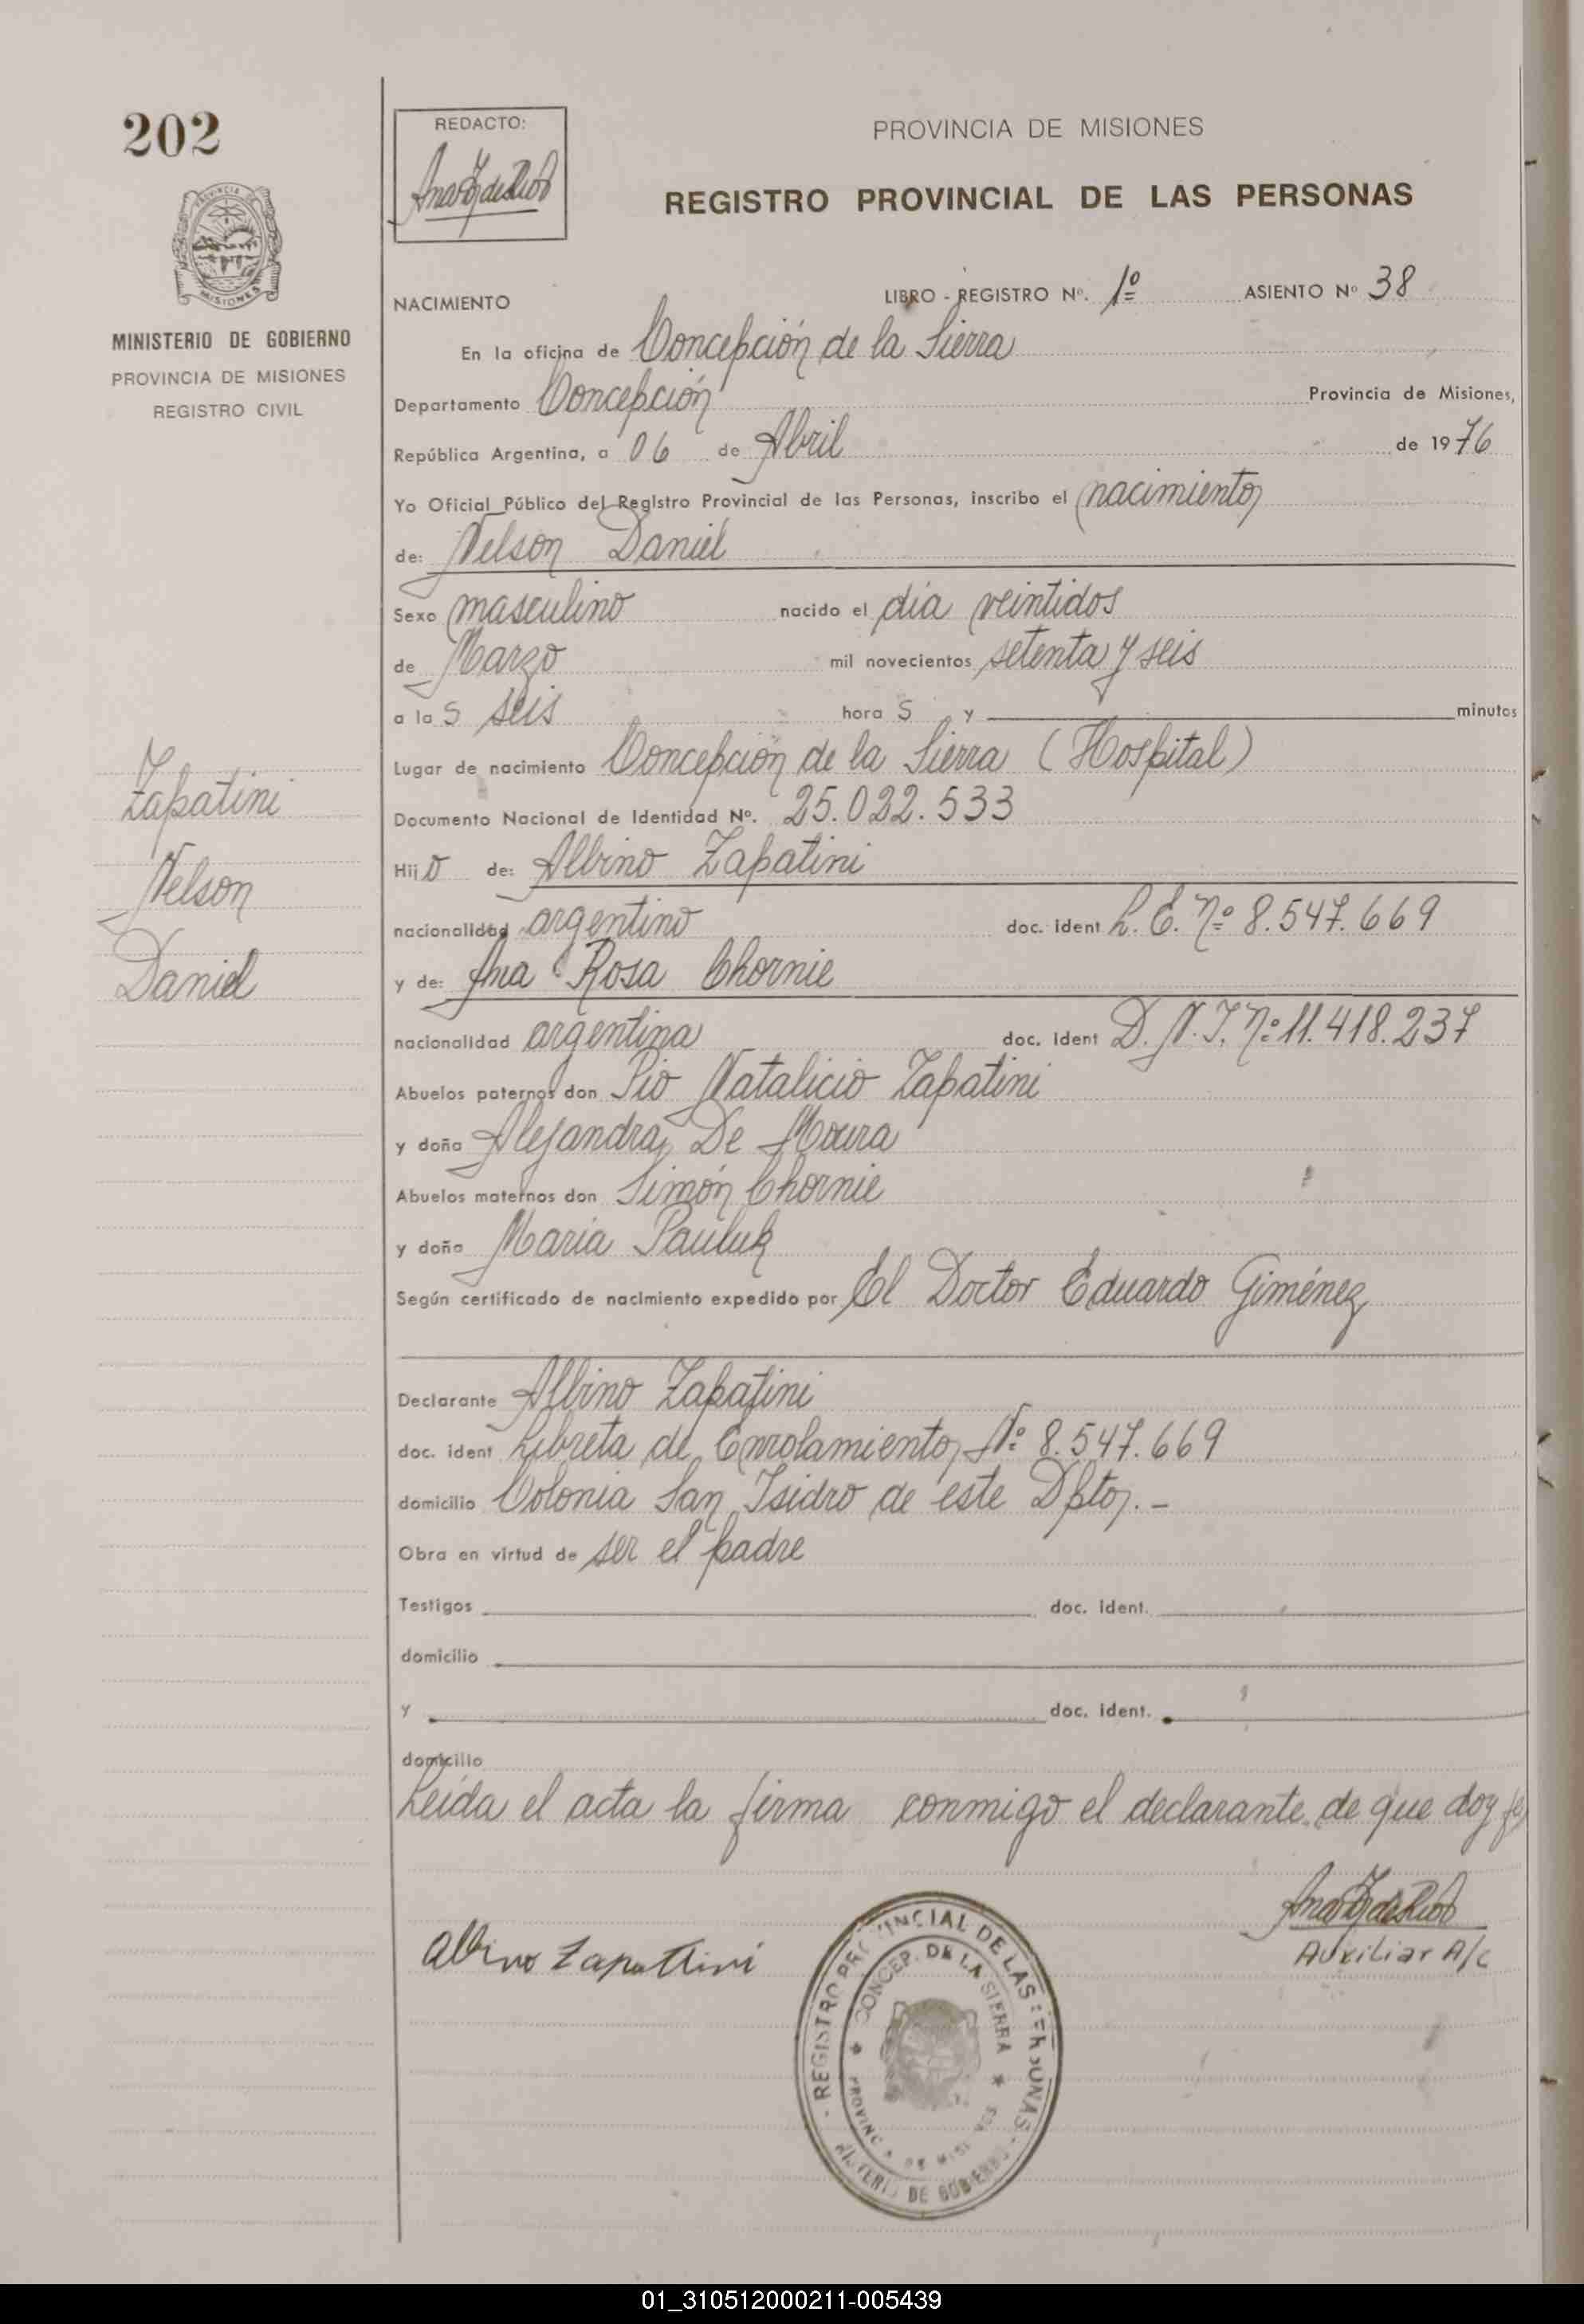 202
REDACTO:
PROVINCIA DE MISIONES
REGISTRO PROVINCIAL DE LAS PERSONAS
PROVINCIA
MISIONES
MINISTERIO DE GOBIERNO
PROVINCIA DE MISIONES
REGISTRO CIVIL
NACIMIENTO LIBRO - REGISTRO Nº. 1º ASIENTO Nº 38
En la oficina de Concepción de la Sierra
Departamento Concepción Provincia de Misiones,
República Argentina, a 06 de Abril de 1976
Yo Oficial Público del Registro Provincial de las Personas, inscribo el nacimiento
de: Nelson Daniel
Sexo masculino nacido el día veintidos
de Marzo mil novecientos setenta y seis
a la s seis hora s y minutos
Lugar de nacimiento Concepción de la Sierra (Hospital)
Documento Nacional de Identidad Nº. 25.022.533
Hijo de: Albino Zapatini
nacionalidad argentino doc. ident L. E. Nº 8.547.669
y de: Ana Rosa Chornie
nacionalidad argentina doc. ident D. N. I. Nº 11.418.237
Abuelos paternos don Pio Natalicio Zapatini
y doña Alejandra De Moura
Abuelos maternos don Simón Chornie
y doña Maria Pauluk
Según certificado de nacimiento expedido por El Doctor Eduardo Giménez
Declarante Albino Zapatini
doc. ident Libreta de Enrolamiento Nº 8.547.669
domicilio Colonia San Isidro de este Dpto. -
Obra en virtud de ser el padre
Testigos doc. ident.
domicilio
y doc. ident.
domicilio
Leída el acta la firma conmigo el declarante de que doy fe
Zapatini
Nelson
Daniel
Albino Zapattini
Auxiliar A/c
REGISTRO PROVINCIAL DE LAS PERSONAS
CONCEP. DE LA SIERRA
PROVINCIA DE MISIONES
MINISTERIO DE GOBIERNO
01_310512000211-005439